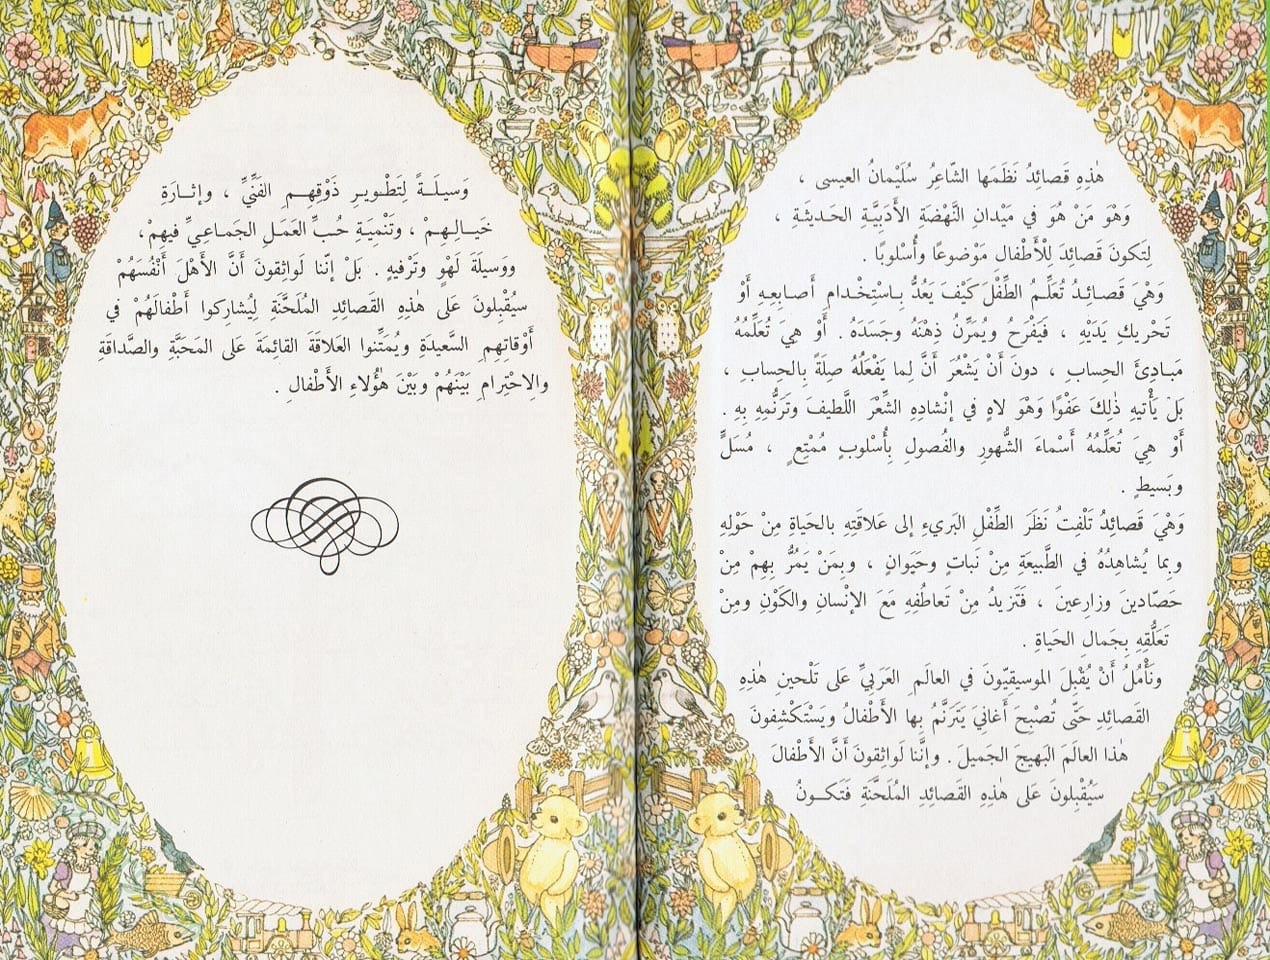 هٰذِهِ قَصائِدُ نَظَمَها الشّاعِرُ سُلَيْمانُ العيسى ،
وَهْوَ مَنْ هُوَ في مَيْدانِ النَّهْضَةِ الأَدَبِيَّةِ الحَديثَةِ ،
لتَكونَ قَصائِدَ لِلْأَطْفالِ مَوْضوعًا وأُسْلوبًا .
وَهْيَ قَصائِدُ تُعَلِّمُ الطِّفْلَ كَيْفَ يَعُدُّ بِاسْتِخْدامِ أَصابِعِهِ أَوْ
تَحْريكِ يَدَيْهِ ، فَيَفْرَحُ ويُمَرِّنُ ذِهْنَهُ وجَسَدَهُ . أَوْ هِيَ تُعَلِّمُهُ
مَبادِئَ الحِسابِ ، دونَ أَنْ يَشْعُرَ أَنَّ لِما يَفْعَلُهُ صِلَةً بِالحِسابِ ،
بَلْ يَأْتيهِ ذٰلِكَ عَفْوًا وَهْوَ لاهٍ في إنْشادِهِ الشِّعْرَ اللَّطيفَ وتَرَنُّمِهِ بِهِ .
أَوْ هِيَ تُعَلِّمُهُ أَسْماءَ الشُّهورِ والفُصولِ بِأُسْلوبٍ مُمْتِعٍ ، مُسَلٍّ
وبَسيطٍ .
وَهْيَ قَصائِدُ تَلْفِتُ نَظَرَ الطِّفْلِ البَريءِ إلى عَلاقَتِهِ بالحَياةِ مِنْ حَوْلِهِ
وبِما يُشاهِدُهُ في الطَّبيعَةِ مِنْ نَباتٍ وحَيَوانٍ ، وبِمَنْ يَمُرُّ بِهِمْ مِنْ
حَصّادينَ وزارِعينَ ، فَتَزيدُ مِنْ تَعاطُفِهِ مَعَ الإنْسانِ والكَوْنِ ومِنْ
تَعَلُّقِهِ بِجَمالِ الحَياةِ .
ونَأْمُلُ أَنْ يُقْبِلَ الموسيقِيّونَ في العالَمِ العَرَبِيِّ عَلى تَلْحينِ هٰذِهِ
القَصائِدِ حَتّى تُصْبِحَ أَغانِيَ يَتَرَنَّمُ بِها الأَطْفالُ ويَسْتَكْشِفونَ
هٰذا العالَمَ البَهيجَ الجَميلَ . وإنَّنا لَواثِقونَ أَنَّ الأَطْفالَ
سَيُقْبِلونَ عَلى هٰذِهِ القَصائِدِ المُلَحَّنَةِ فَتَكونُ
وَسيلَةً لِتَطْويرِ ذَوْقِهِمِ الفَنِّيِّ ، وإثارَةِ
خَيالِهِمْ ، وتَنْمِيَةِ حُبِّ العَمَلِ الجَماعِيِّ فيهِمْ ،
ووَسيلَةَ لَهْوٍ وتَرْفيهٍ . بَلْ إنَّنا لَواثِقونَ أَنَّ الأَهْلَ أَنْفُسَهُمْ
سَيُقْبِلونَ عَلى هٰذِهِ القَصائِدِ المُلَحَّنَةِ لِيُشارِكوا أَطْفالَهُمْ في
أَوْقاتِهِمِ السَّعيدَةِ ويُمَتِّنوا العَلاقَةَ القائِمَةَ عَلى المَحَبَّةِ والصَّداقَةِ
والاِحْتِرامِ بَيْنَهُمْ وبَيْنَ هٰؤُلاءِ الأَطْفالِ .